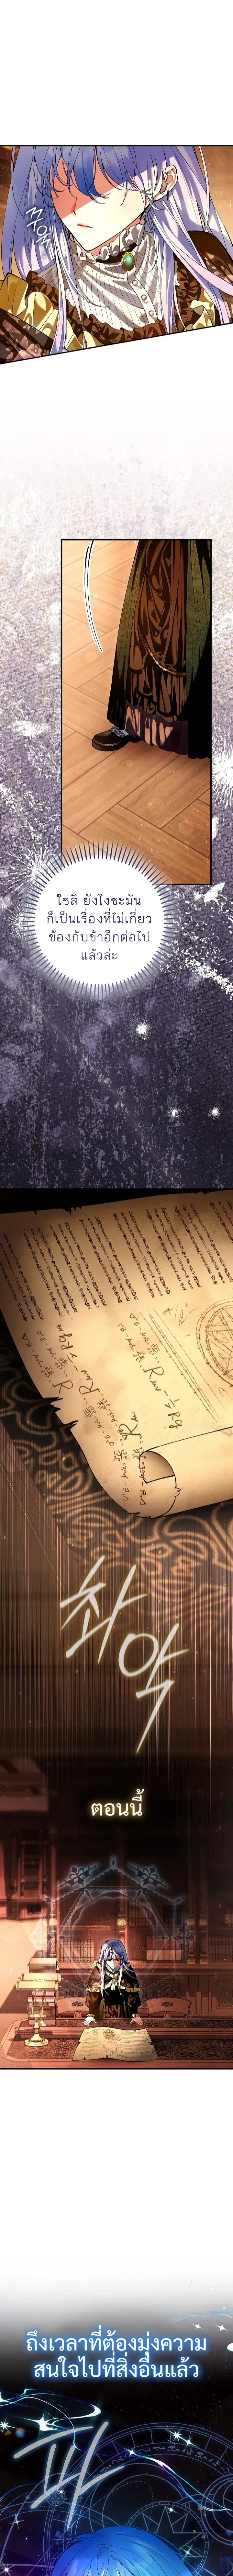 ใช่สิ ยังไงซะมัน
ก็เป็นเรื่องที่ไม่เกี่ยว
ข้องกับข้าอีกต่อไป
แล้วล่ะ
촤
악
ตอนนี้
ถึงเวลาที่ต้องมุ่งความ
สนใจไปที่สิ่งอื่นแล้ว